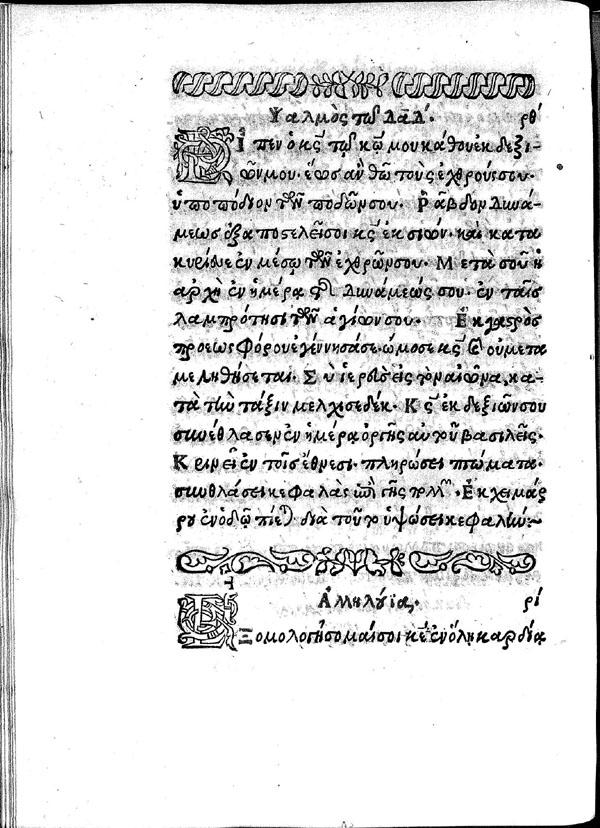 Ψαλμὸς τῷ Δᾱδ. ρθ
Εἶπεν ὁ κς τῷ κῳ μου κάθου ἐκ δεξι-
ῶν μου· ἕως ἂν θῶ τοὺς ἐχθρούς σου·
ὑποπόδιον τῶν ποδῶν σου. Ῥάβδον δυνά-
μεως ἐξαποστελεῖ σοι κς ἐκ σιών· καὶ κατα
κυρίευε ἐν μέσῳ τῶν ἐχθρῶν σου. Μετὰ σοῦ ἡ
ἀρχὴ ἐν ἡμέρᾳ τῆς δυνάμεώς σου· ἐν ταῖς
λαμπρότησι τῶν ἁγίων σου. Ἐκ γαστρὸς
πρὸ ἑωσφόρου ἐγέννησά σε· ὤμοσε κς καὶ οὐ μετα
μεληθήσεται. Σὺ ἱερεὺς εἰς τὸν αἰῶνα, κα-
τὰ τὴν τάξιν μελχισεδέκ. Κς ἐκ δεξιῶν σου
συνέθλασεν ἐν ἡμέρᾳ ὀργῆς αὐτοῦ βασιλεῖς.
Κρινεῖ ἐν τοῖς ἔθνεσι· πληρώσει πτώματα·
συνθλάσει κεφαλὰς ἐπὶ γῆς πολλῶν. Ἐκ χειμάρ
ρου ἐν ὁδῷ πίεται διὰ τοῦτο ὑψώσει κεφαλήν:~
Ἀλληλούϊα. ρι
Ἐξομολογήσομαί σοι κε ἐν ὅλῃ καρδίᾳ